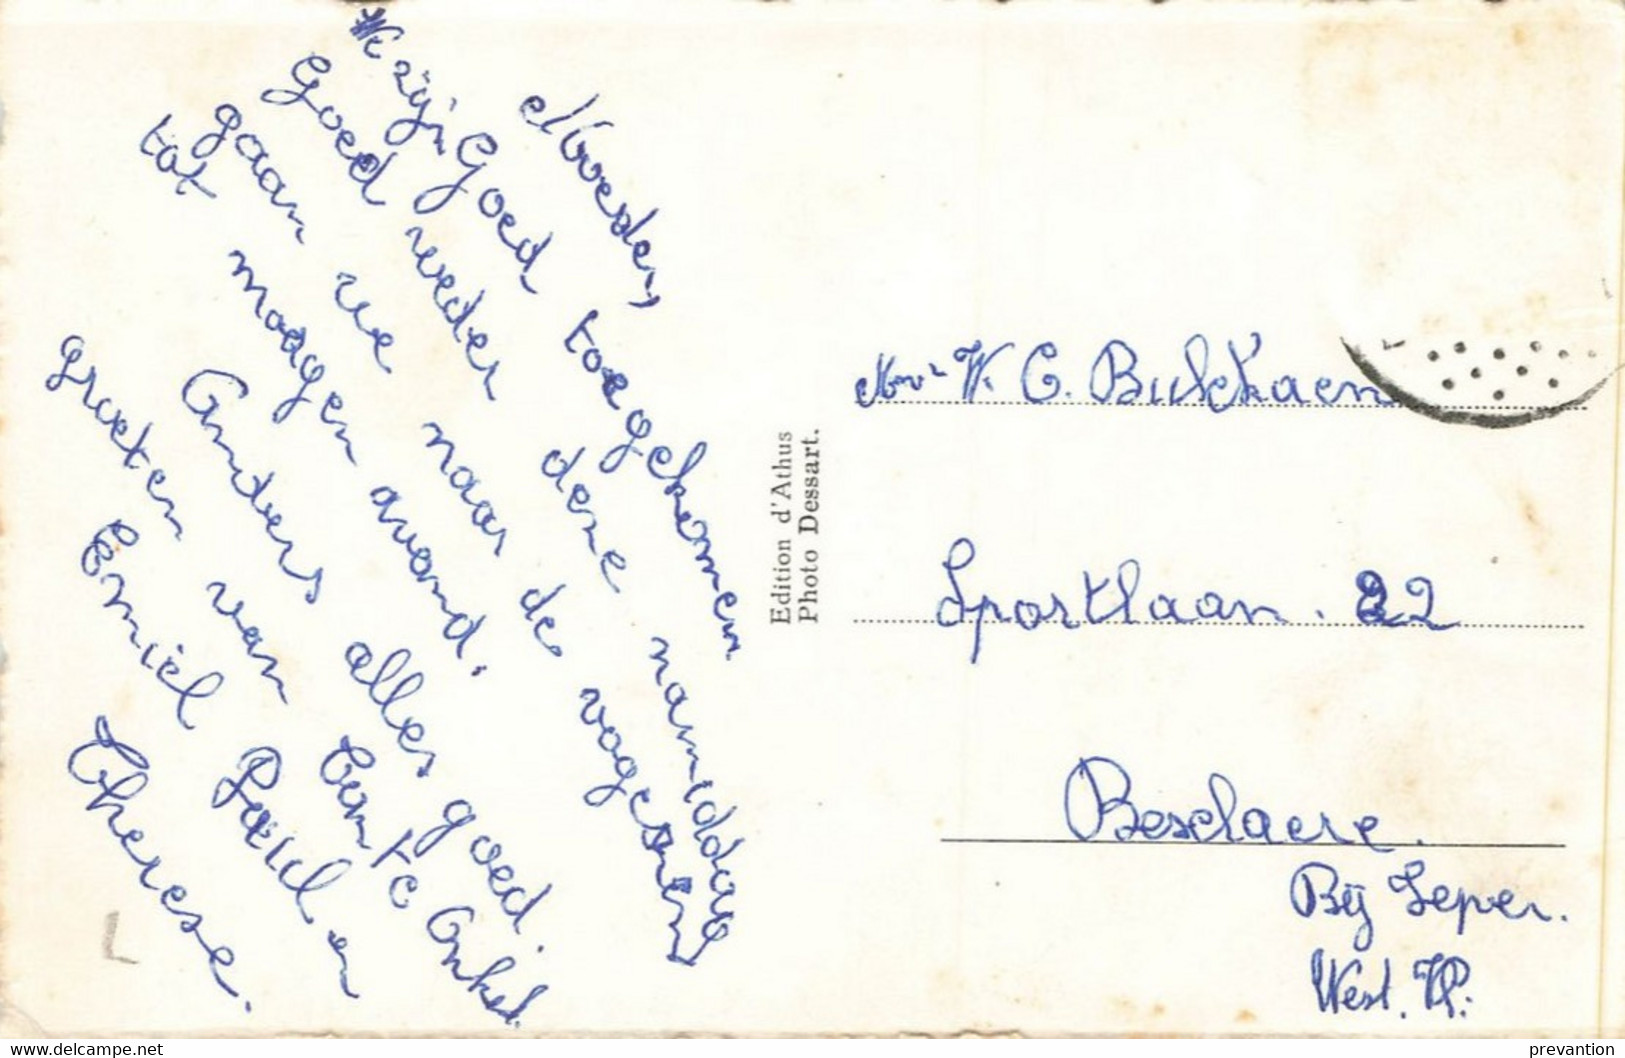 Moeder,
We zijn Goed toegekomen
Goed weder dene namiddag
gaan we naar de vogels
tot morgen avond.
Anders alles goed.
groeten van Tante Onkel
Emiel Paul en
Therese.
Edition d'Athus
Photo Dessart.
Mvr W. C. Bulckaen
Sportlaan. 22
Beselaere.
Bij Ieper.
West. Vl.
delcampe.net
prevantion